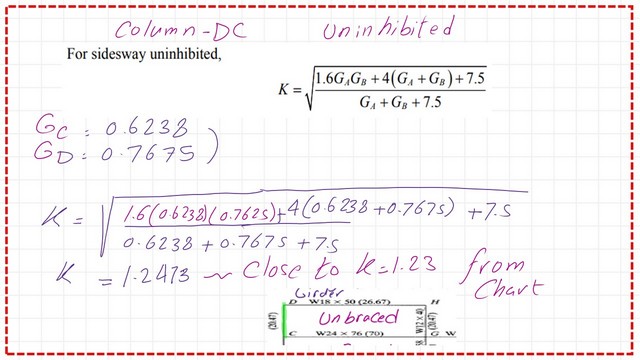 Column-DC Uninhibited
For sidesway uninhibited,
K = √((1.6G_A G_B + 4(G_A + G_B) + 7.5) / (G_A + G_B + 7.5))
G_C = 0.6238
G_D = 0.7675 )
K = √((1.6(0.6238)(0.7625)+4(0.6238+0.7675) + 7.5) / (0.6238 + 0.7675 + 7.5))
K = 1.2473 ~ Close to k=1.23 from Chart
Girder
D W18 × 50 (26.67) H
(20.47) Unbraced W12 × 40 (20.47)
C W24 × 76 (70) G W